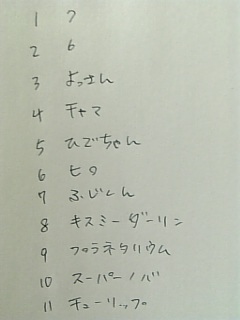 1 7
2 6
3 よっさん
4 チャマ
5 ひでちゃん
6 ヒロ
7 ふじくん
8 キスミーダーリン
9 プラネタリウム
10 スーパーノバ
11 チューリップ